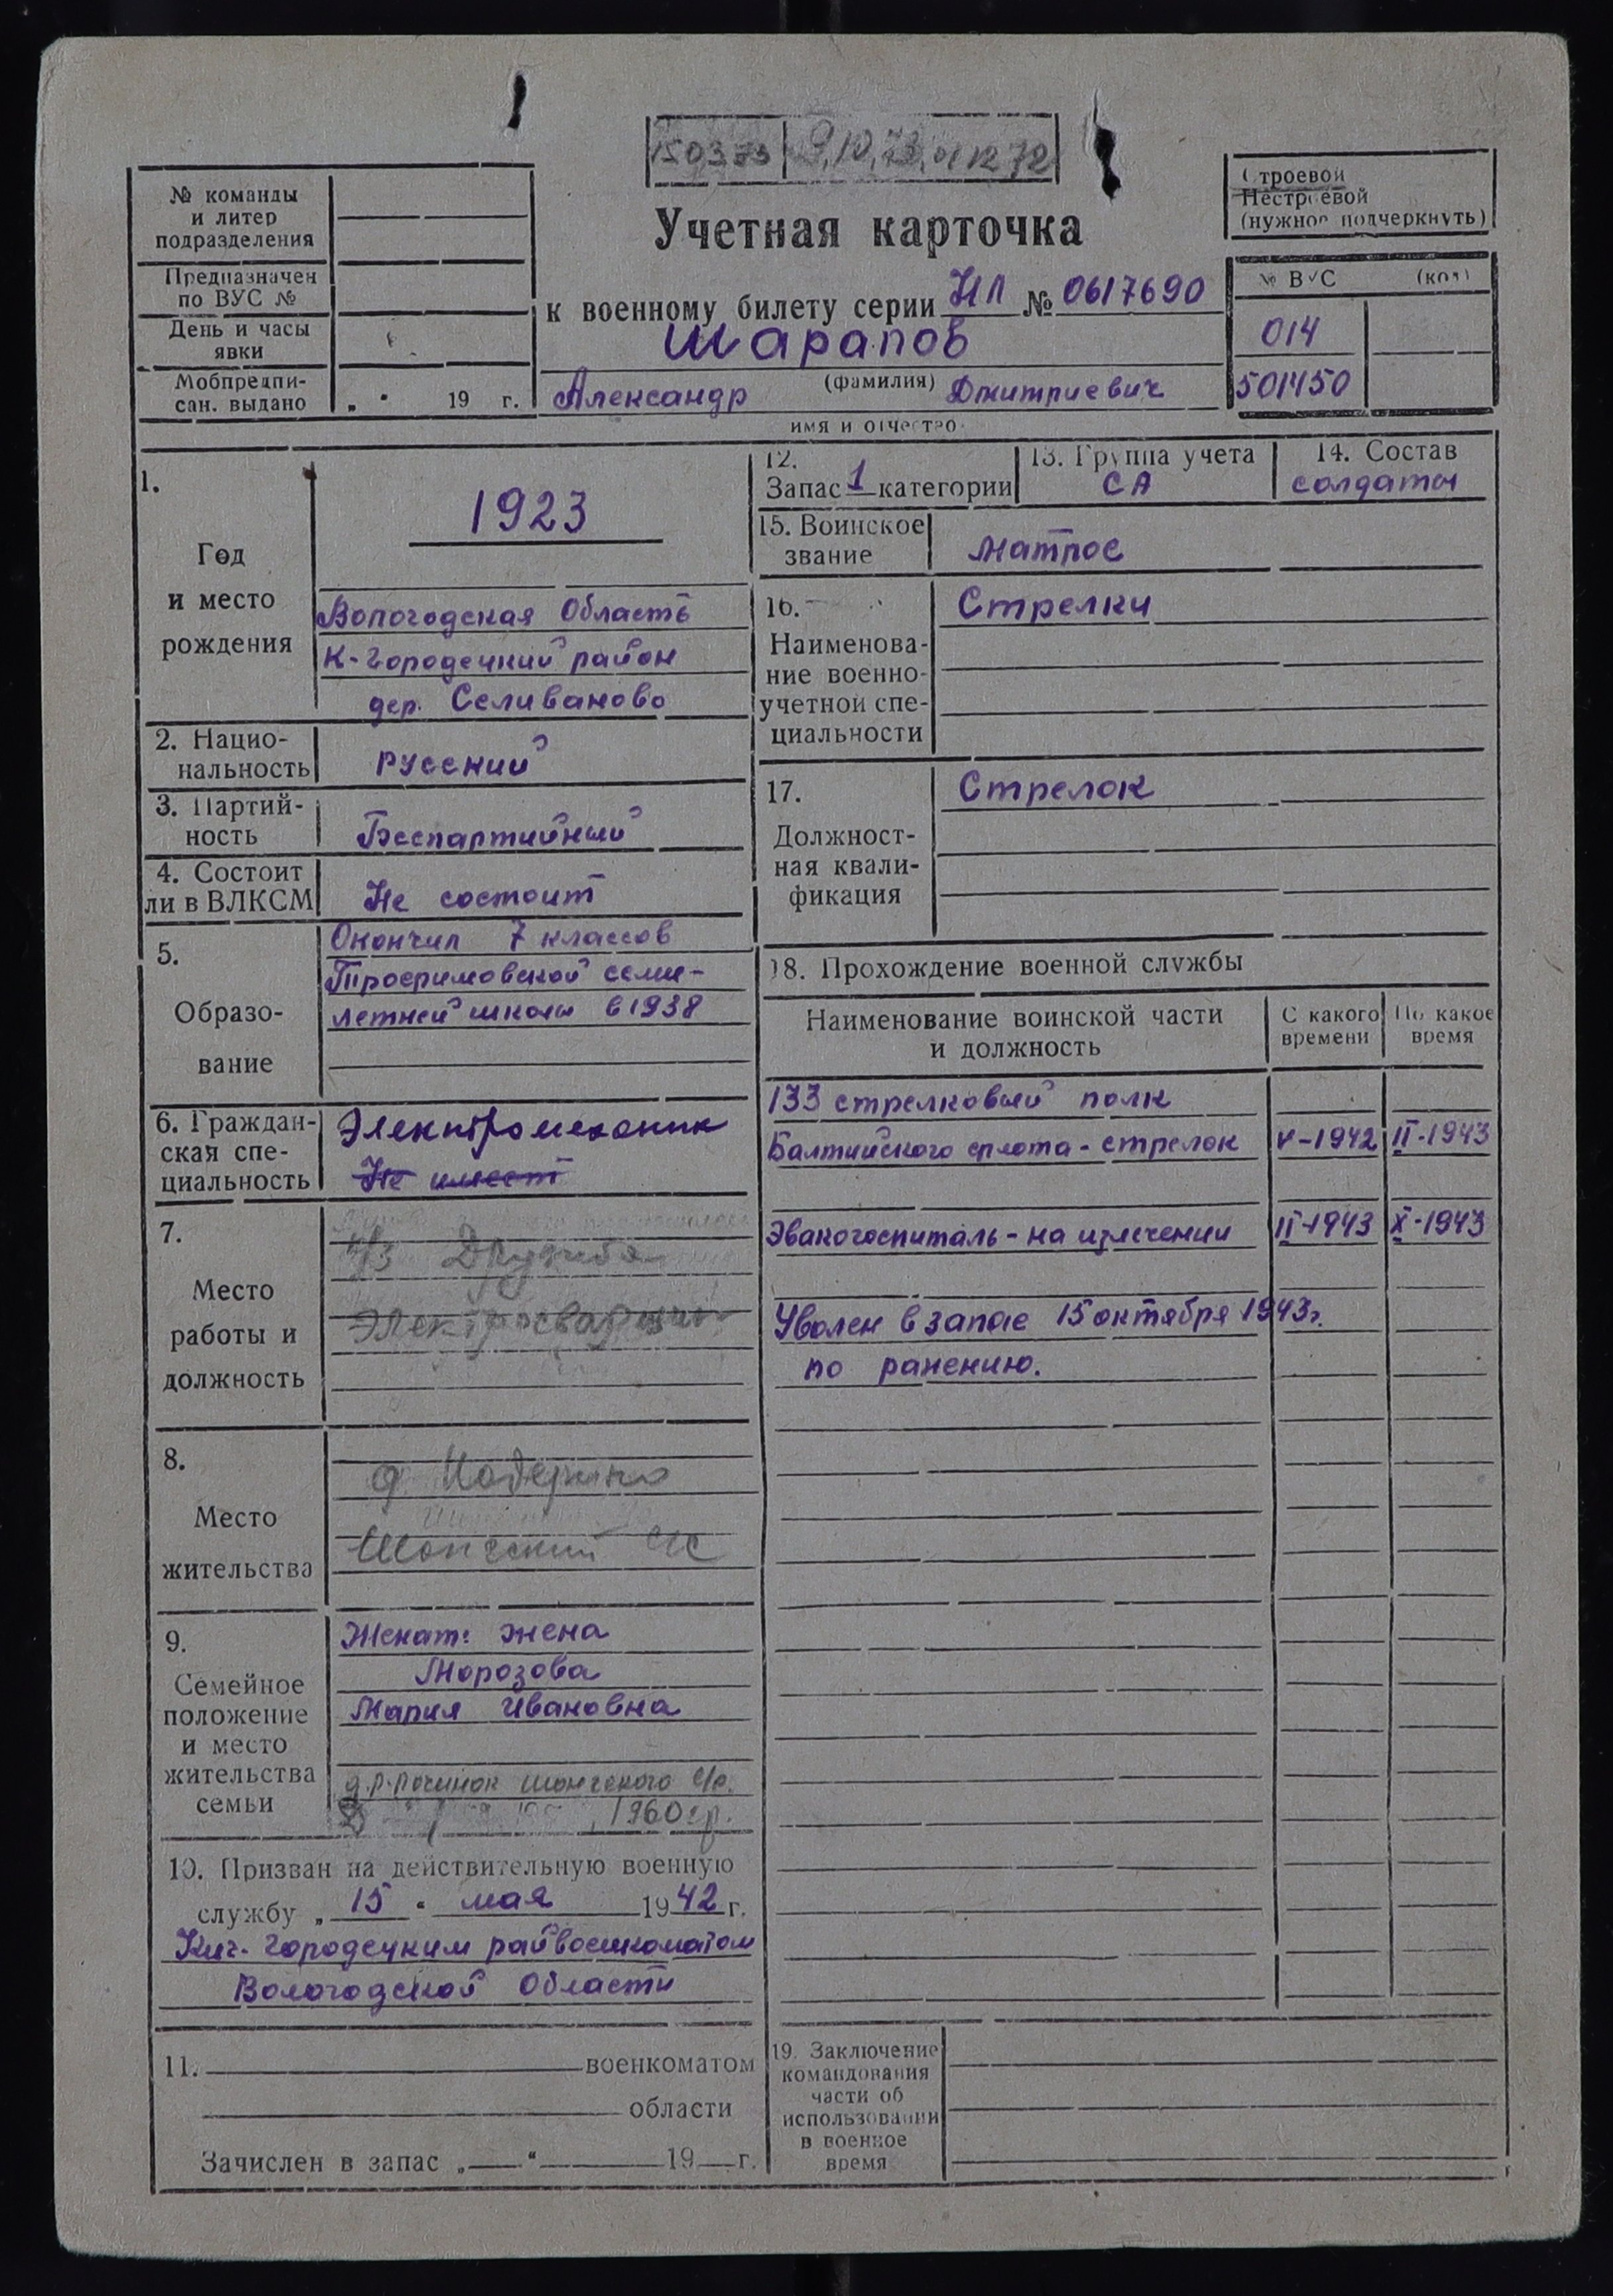 150373 9.10.73
№ команды
и литер
подразделения
Предназначен
по ВУС №
День и часы
явки
Мобпредпи-
сан. выдано „ “ 19 г.
Учетная карточка
к военному билету серии НЛ № 0617690
Шарапов
(фамилия)
Александр Дмитриевич
имя и отчество
Строевой
Нестроевой
(нужное подчеркнуть)
№ ВУС (код)
014
501450
1.
Год
и место
рождения
1923
Вологодская Область
К-Городецкий район
дер. Селиваново
2. Нацио-
нальность
Русский
3. Партий-
ность
Беспартийный
4. Состоит
ли в ВЛКСМ
Не состоит
5.
Образо-
вание
Окончил 7 классов
Трофимовской семи-
летней школы в 1938
6. Граждан-
ская спе-
циальность
Электромеханик
Не имеет
7.
Место
работы и
должность
к/з Дружба
Электросварщик
8.
Место
жительства
д.
Шонгский с/с
9.
Семейное
положение
и место
жительства
семьи
Женат: жена
Морозова
Мария Ивановна
д.р. Починок Шонгского с/с.
1960 г.р.
10. Призван на действительную военную
службу „ 15 “ мая 1942 г.
Кич-Городецким райвоенкоматом
Вологодской Области
11. военкоматом
области
Зачислен в запас „ “ 19 г.
12.
Запас 1 категории
13. Группа учета
СА
14. Состав
солдаты
15. Воинское
звание
Матрос
16.
Наименова-
ние военно-
учетной спе-
циальности
Стрелки
17.
Должност-
ная квали-
фикация
Стрелок
18. Прохождение военной службы
Наименование воинской части
и должность
С какого
времени
По какое
время
133 стрелковый полк
Балтийского флота - стрелок V-1942 II-1943
Эвакогоспиталь - на излечении II-1943 X-1943
Уволен в запас 15 октября 1943г.
по ранению.
19. Заключение
командования
части об
использовании
в военное
время